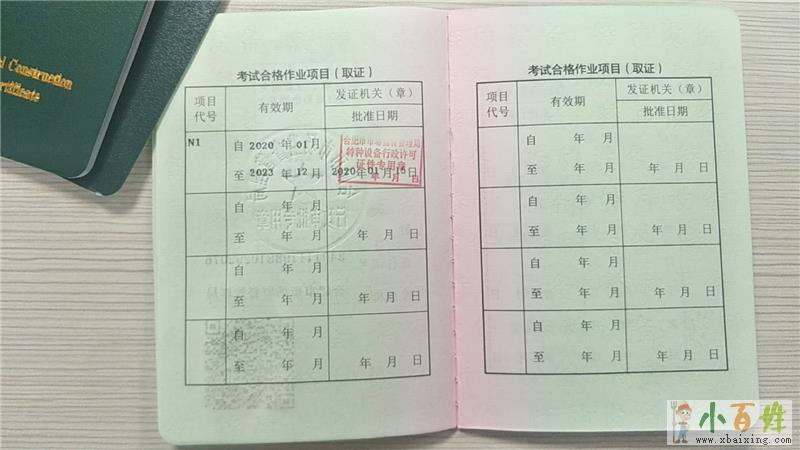 d Construction
ertificate
考试合格作业项目（取证）
项目代号 有效期 发证机关（章）
批准日期
N1 自 2020 年 01 月
至 2023 年 12 月 2020 年 01 月 15 日
合肥市市场监督管理局
特种设备行政许可
证件专用章
年 月 日
自 年 月
至 年 月 年 月 日
自 年 月
至 年 月 年 月 日
自 年 月
至 年 月 年 月 日
考试合格作业项目（取证）
项目代号 有效期 发证机关（章）
批准日期
自 年 月
至 年 月 年 月 日
自 年 月
至 年 月 年 月 日
自 年 月
至 年 月 年 月 日
自 年 月
至 年 月 年 月 日
小百姓
www.xbaixing.com